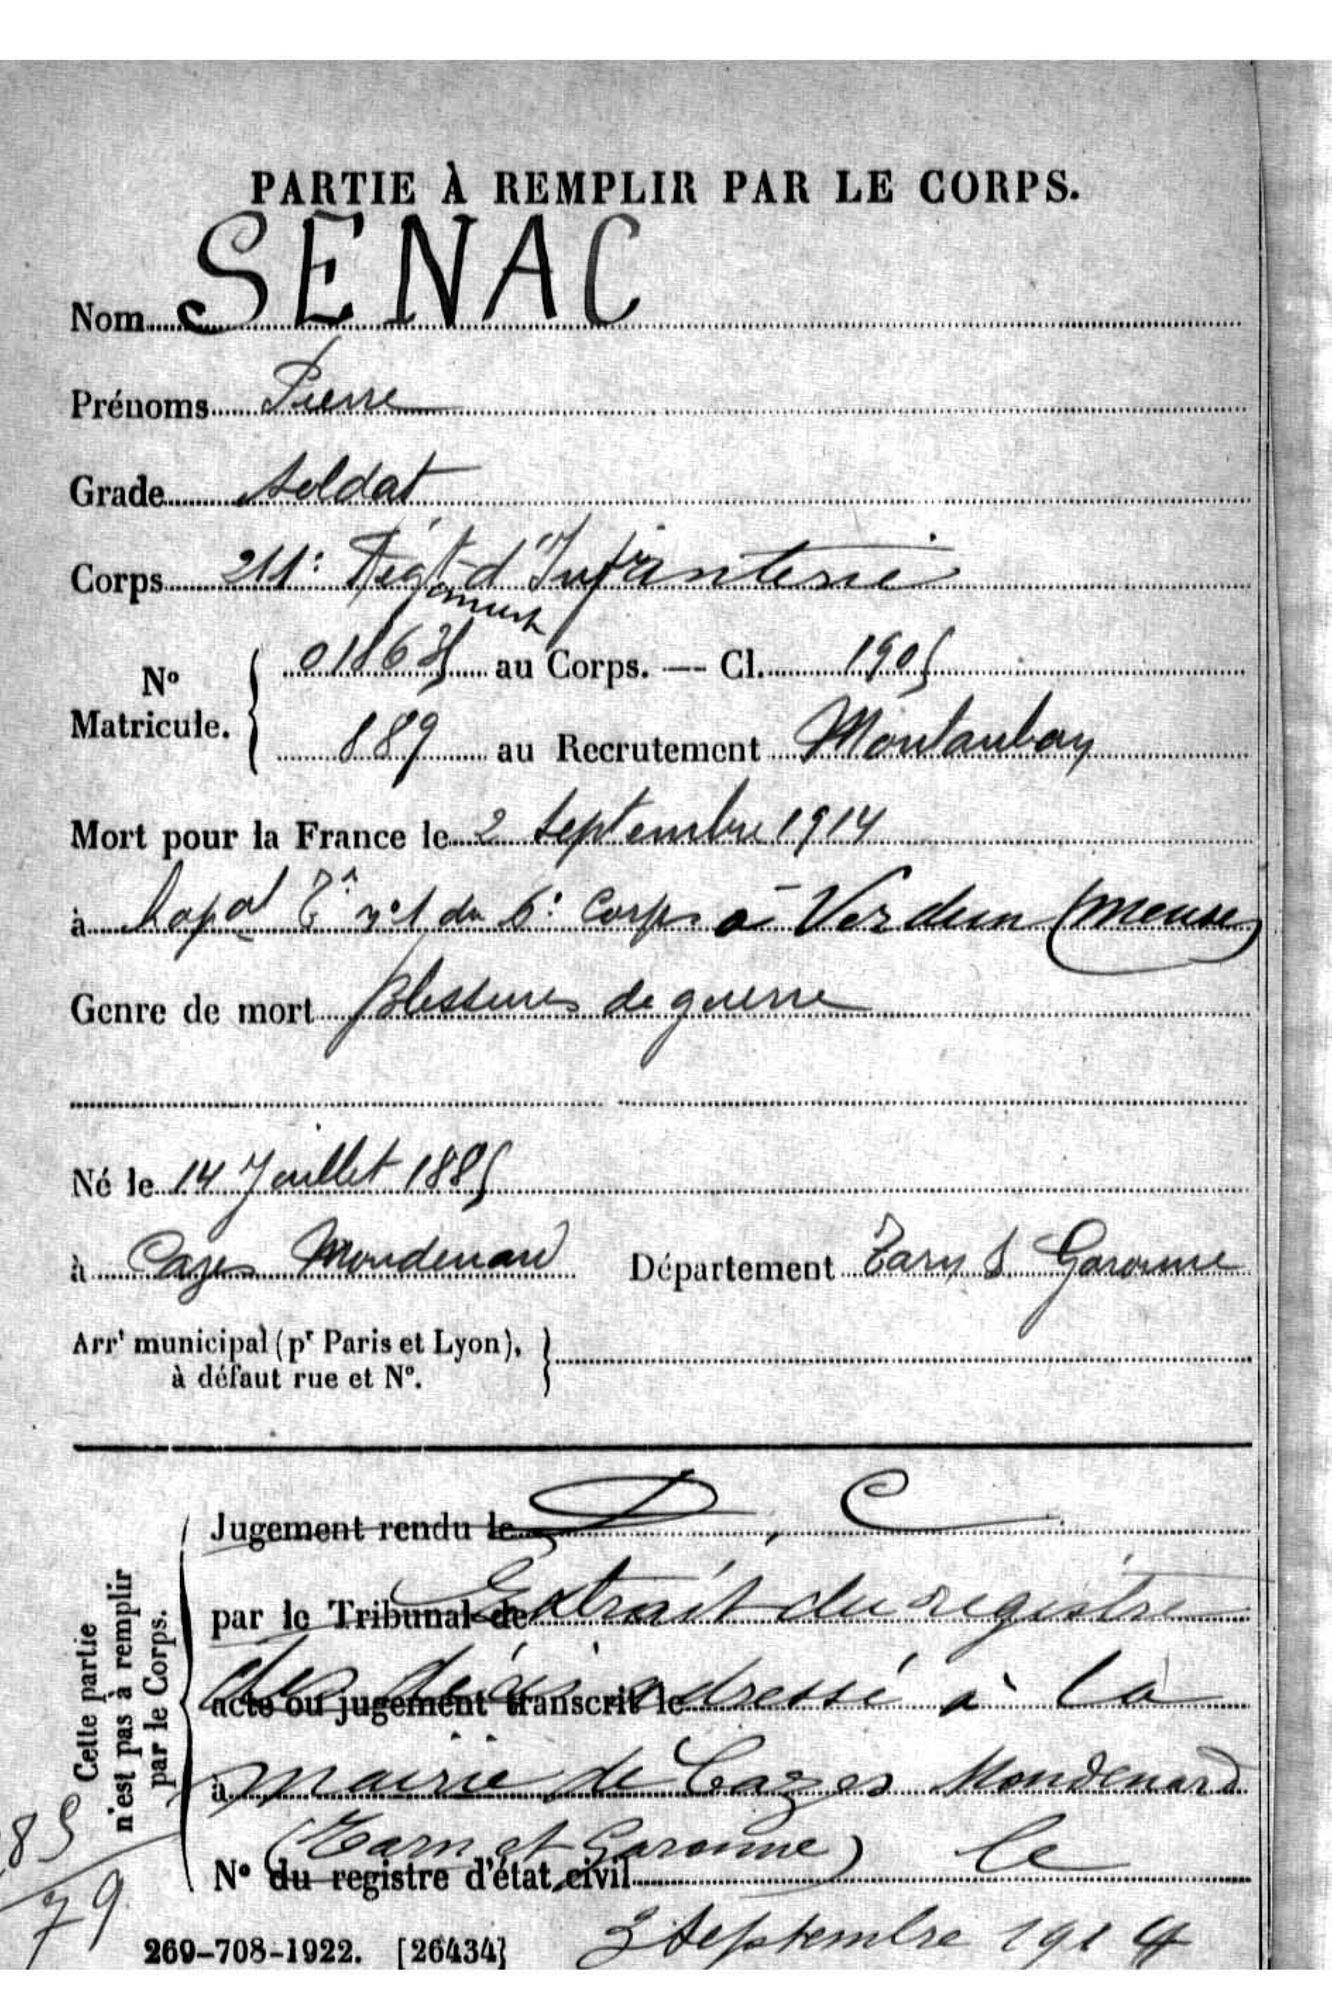 PARTIE À REMPLIR PAR LE CORPS.
Nom SENAC
Prénoms Pierre
Grade Soldat
Corps 211e Régt d'Infanterie
N° Matricule. { 01863 au Corps. — Cl. 1905
889 au Recrutement Montauban
Mort pour la France le 2 Septembre 1914
à hopal Tre n°1 du 6e Corps à Verdun (Meuse)
Genre de mort Blessures de guerre
Né le 14 Juillet 1885
à Cazes Mondenard Département Tarn & Garonne
Arrt municipal (pr Paris et Lyon), }
à défaut rue et N°.
Cette partie n'est pas à remplir par le Corps.
Jugement rendu le D, C
par le Tribunal de Extrait du registre
acte ou jugement transcrit le des décès adressé à la
à mairie de Cazes Mondenard
N° du registre d'état civil (Tarn et Garonne) le
3 Septembre 1914
79
269-708-1922. [26434]